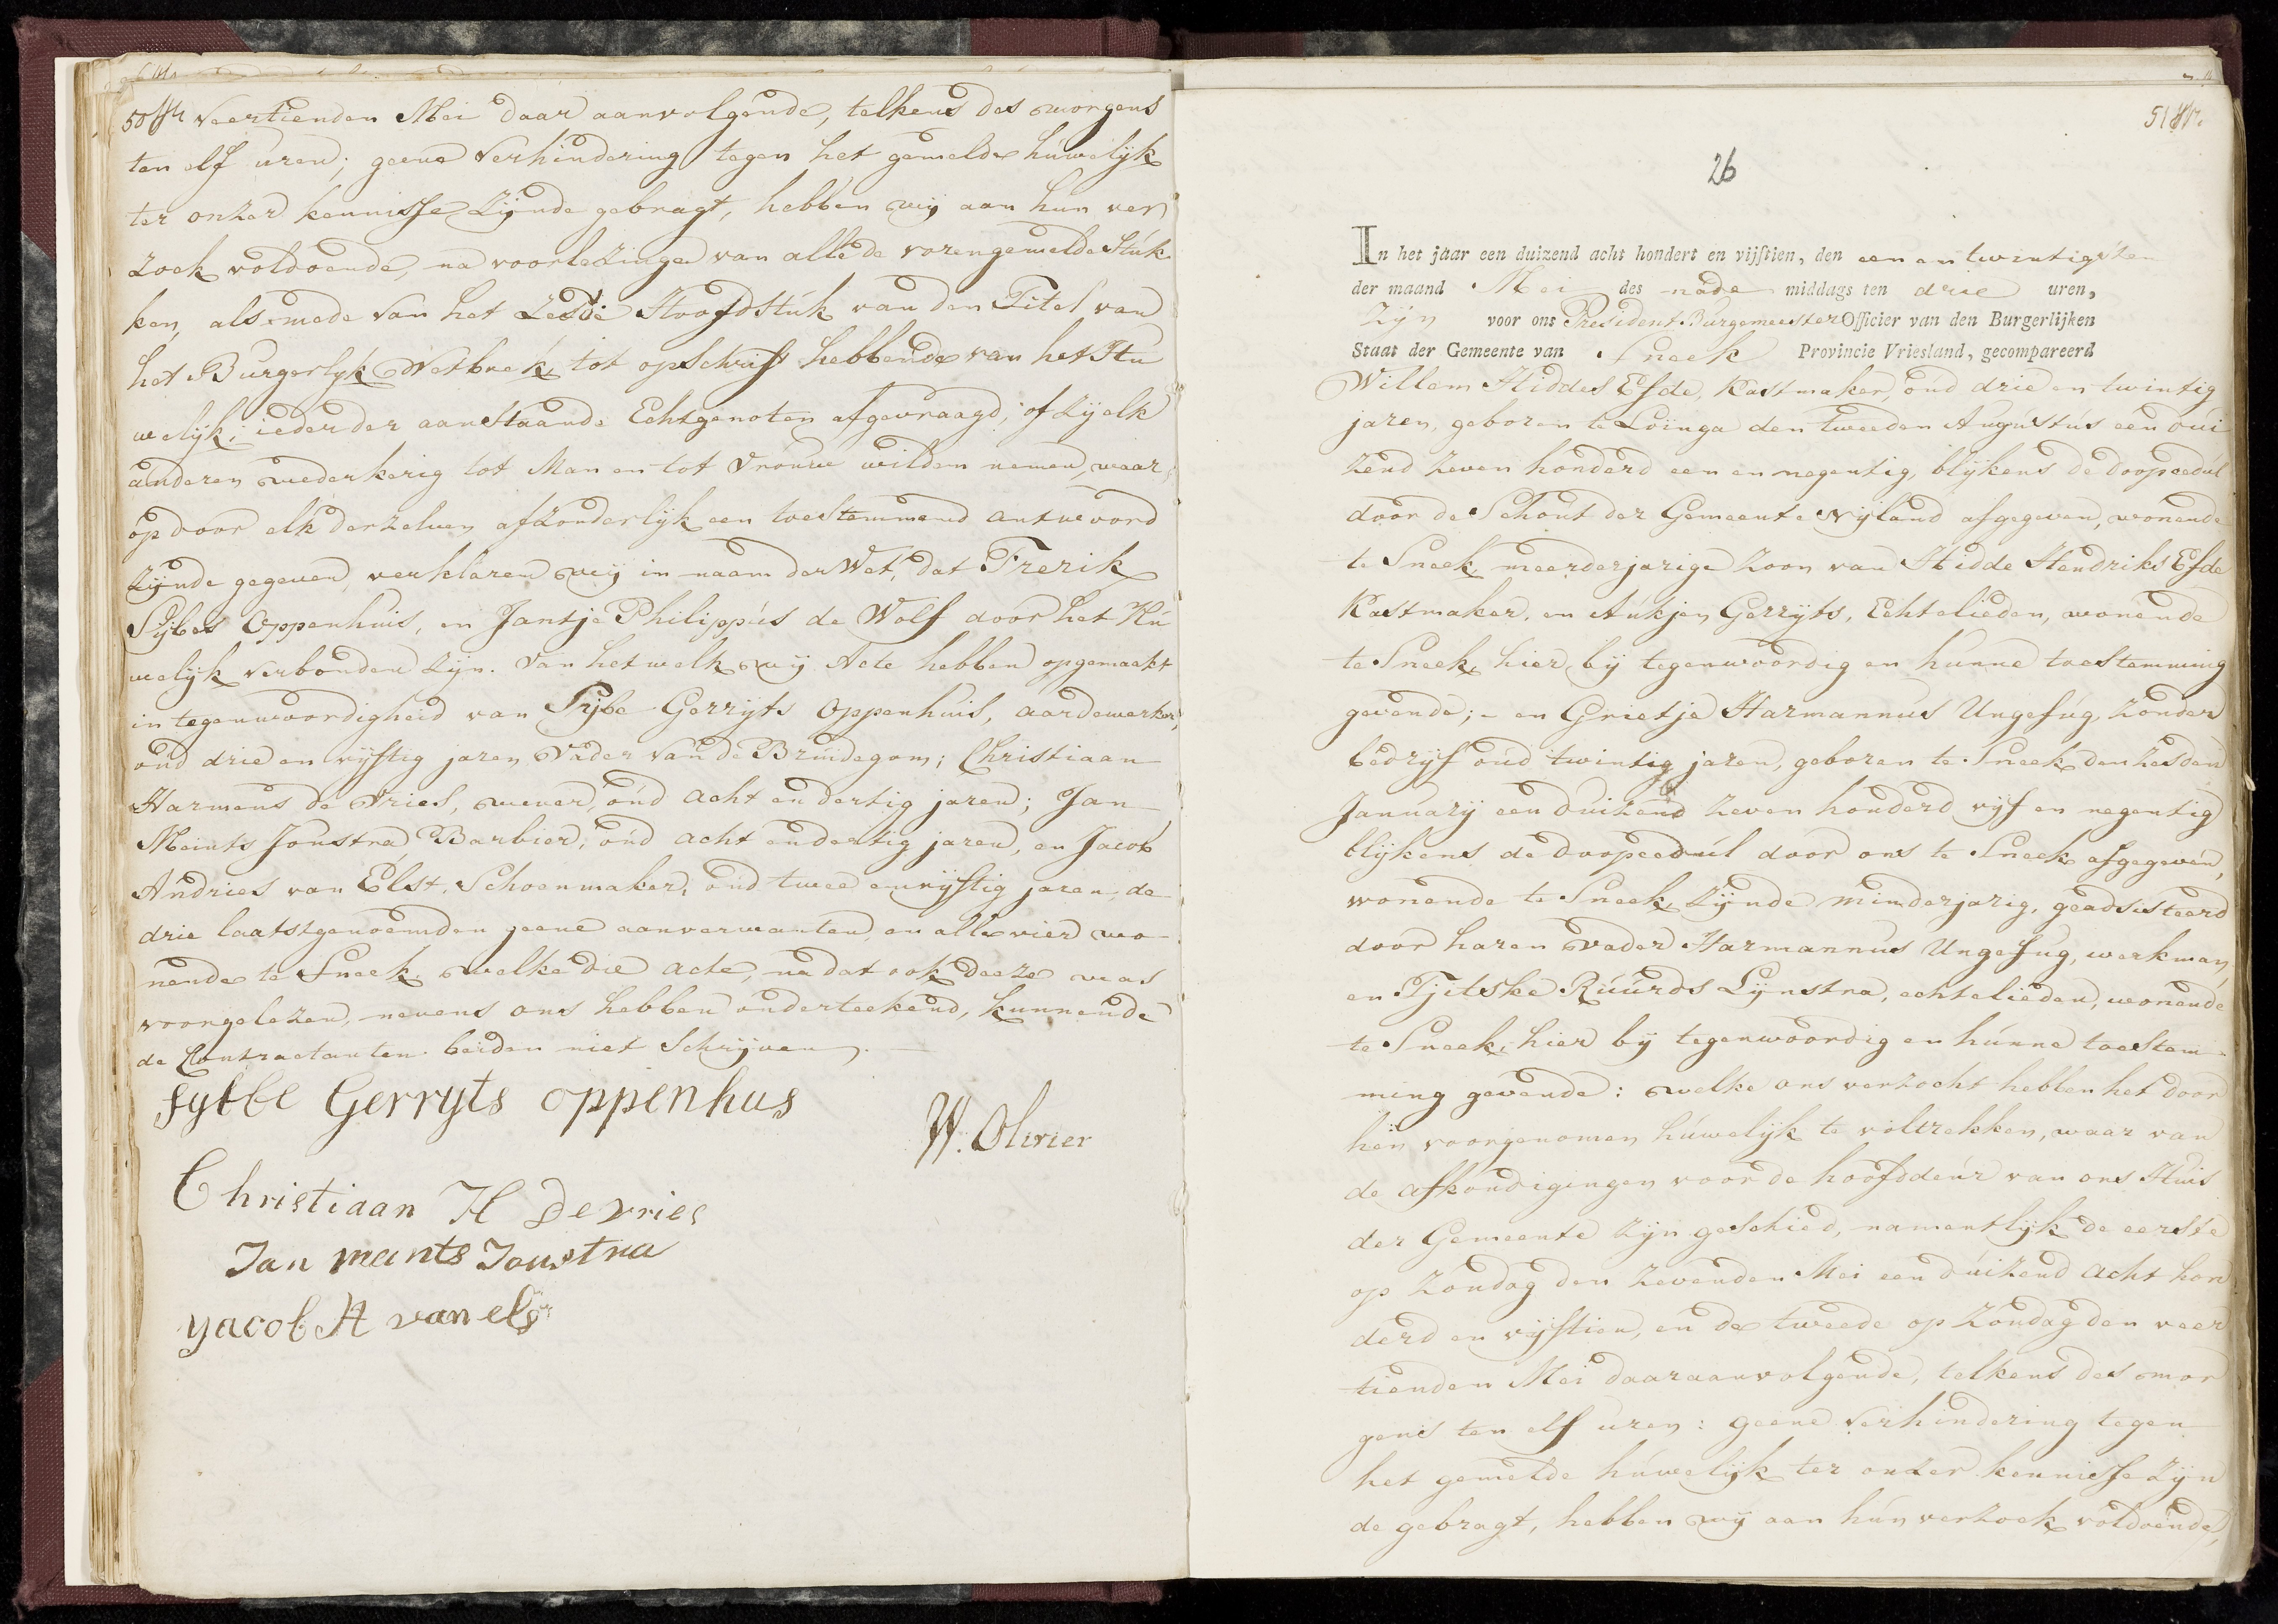 veertienden Mei daar aanvolgende, telkens des morgens
ten elf uren; geene verhindering tegen het gemelde huwelijk
ter onzer kennisse zijnde gebragt, hebben wij aan hun ver
zoek voldoende, na voorlezinge van alle de vorengemelde Stuk
ken, als mede van het Zesde Hoofdstuk van den Titel van
het Burgerlyk Wetboek, tot opschrift hebbende van het Hu
welijk; ieder der aanstaande Echtgenoten afgevraagd, of zij elk
anderen wederkerig tot Man en tot Vrouw wilden nemen, waar
op door elk derzelven afzonderlijk een toestemmend antwoord
zijnde gegeven, verklaren wij in naam der Wet, dat Frerik
Sijbes Oppenhuis, en Jantje Philippus de Wolf door het Hu
welijk verbonden zijn. Van het welk wij Acte hebben opgemaakt
in tegenwoordigheid van Sijbe Gerryts Oppenhuis, aardewerker,
oud drie en vijftig jaren Vader van de Bruidegom; Christiaan
Harmens de Vries, wever, oud acht en dertig jaren; Jan
Meints Joustra Barbier, oud acht en dertig jaren, en Jacob
Andries van Elst, Schoenmaker, oud twee en vijftig jaren, de
drie laatstgenoemden geene aanverwanten, en alle vier wo-
nende te Sneek, welke die acte, na dat ook deeze was
voorgelezen, nevens ons hebben onderteekend, kunnende
de Contractanten beiden niet Schrijven.
sybbe Gerryts oppenhus
W. Olivier
Christiaan H de vries
Jan meints Joustra
yacob A van els
26
In het jaar een duizend acht hondert en vijftien, den een en twintigsten
der maand Mei des nade middags ten drie uren,
Zijn voor ons President Burgemeester Officier van den Burgerlijken
Staat der Gemeente van Sneek Provincie Vriesland, gecompareerd
Willem Hiddes Esde, Kastmaker, oud drie en twintig
jaren, geboren te Loinga den tweeden Augustus een dui
zend zeven honderd een en negentig, blijkens de doopcedul
door de Schout der Gemeente Wyland afgegeven, wonende
te Sneek, meerderjarige zoon van Hidde Hendriks Esde
Kastmaker, en Aukjen Gerryts, Echtelieden, wonende
te Sneek, hier bij tegenwoordig en hunne toestemming
gevende; - en Grietje Harmannus Ungefug, zonder
bedrijf oud twintig jaren, geboren te Sneek den zesden
January een duizend zeven honderd vijf en negentig
blijkens de doopcedul door ons te Sneek afgegeven,
wonende te Sneek, zijnde minderjarig, geadsisteerd
door haren vader Harmannus Ungefug, werkman,
en Tjitske Ruurds Lijnstra, echtelieden, wonende
te Sneek, hier bij tegenwoordig en hunne toestem-
ming gevende: welke ons verzocht hebben het door
hen voorgenomen huwelijk te voltrekken, waar van
de afkondigingen voor de hoofddeur van ons Huis
der Gemeente zijn geschied, namentlijk de eerste
op zondag den zevenden Mei een duizend acht hon
derd en vijftien, en de tweede op zondag den veer
tienden Mei daaraanvolgende, telkens des mor
gens ten elf uren: geene verhindering tegen
het gemelde huwelijk ter onzer kennisse zijn
de gebragt, hebben wij aan hun verzoek voldoende,